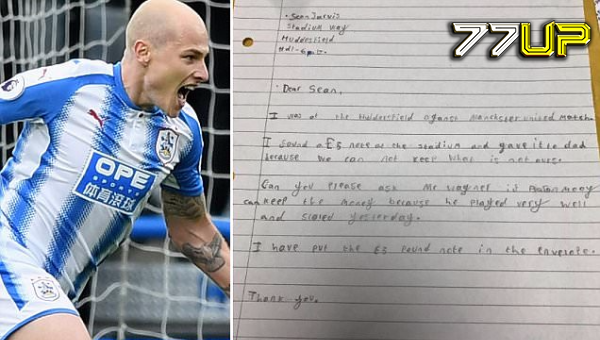 OPE
SPORTS
体育滚球
77UP
Sean Jarvis
Stadium way
Dear Sean,
I was at the Huddersfield against Manchester united match
I found a £5 note at the stadium and gave it to dad
because we can not keep what is not ours.
Can you please ask Mr wagner if mooy
can keep the money because he played very well
and scored yesterday.
I have put the £5 pound note in the envelope.
Thank you.